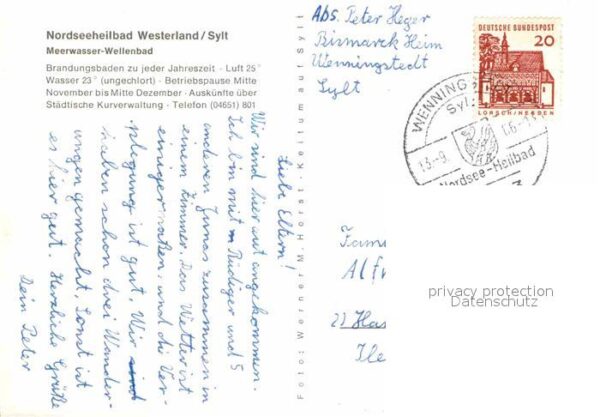 Nordseeheilbad Westerland/Sylt
Meerwasser-Wellenbad
Brandungsbaden zu jeder Jahreszeit · Luft 25°
Wasser 23° (ungechlort) · Betriebspause Mitte
November bis Mitte Dezember · Auskünfte über
Städtische Kurverwaltung · Telefon (04651) 801
Liebe Eltern!
Wir sind hier gut angekommen.
Ich bin mit Rüdiger und 5
anderen Jungs zusammen in
einem Zimmer. Das Wetter ist
einigermaßen, und die Ver-
pflegung ist gut. Wir
haben schon drei Wander-
ungen gemacht. Sonst ist
es hier gut. Herzliche Grüße
Dein Peter
Foto: Werner M. Horst · Keitum auf Sylt
Abs. Peter Heger
Bismarck Heim
Wenningstedt
Sylt
DEUTSCHE BUNDESPOST
20
LORSCH/HESSEN
WENNING
Sylt
13.-9.
Nordsee-Heilbad
Fam
Alf
privacy protection
Datenschutz